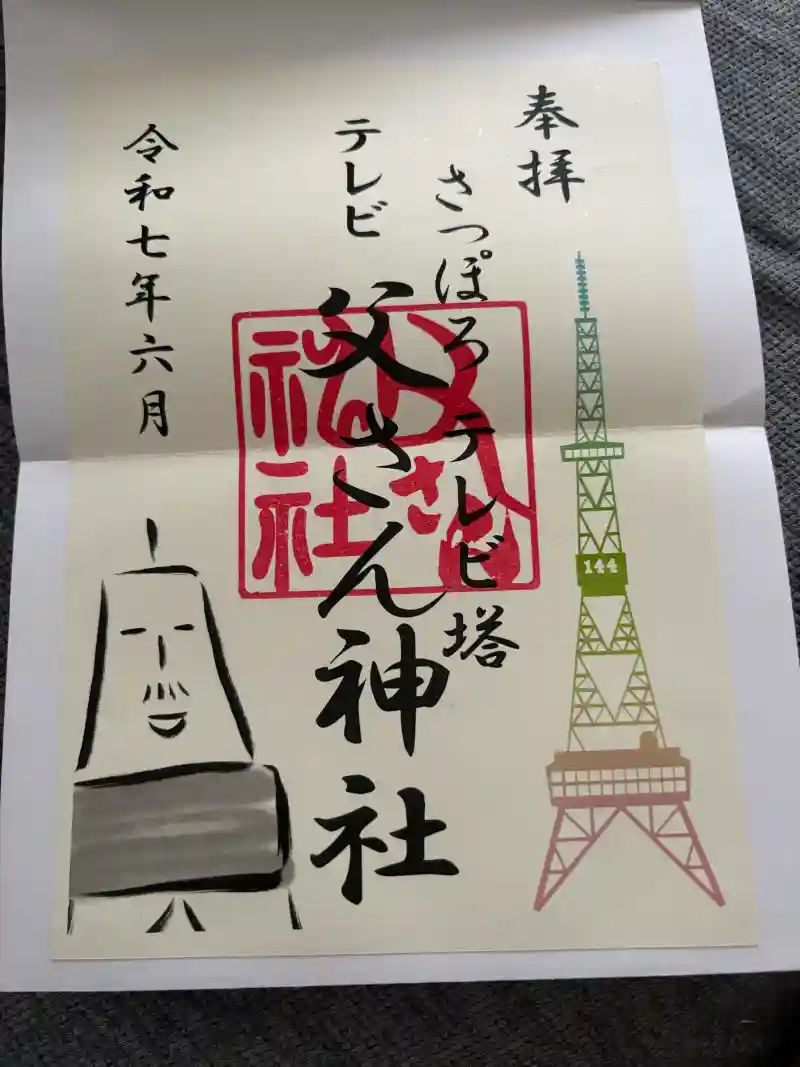 奉拝
さっぽろテレビ塔
テレビ父さん神社
父さん
神社
令和七年六月
144